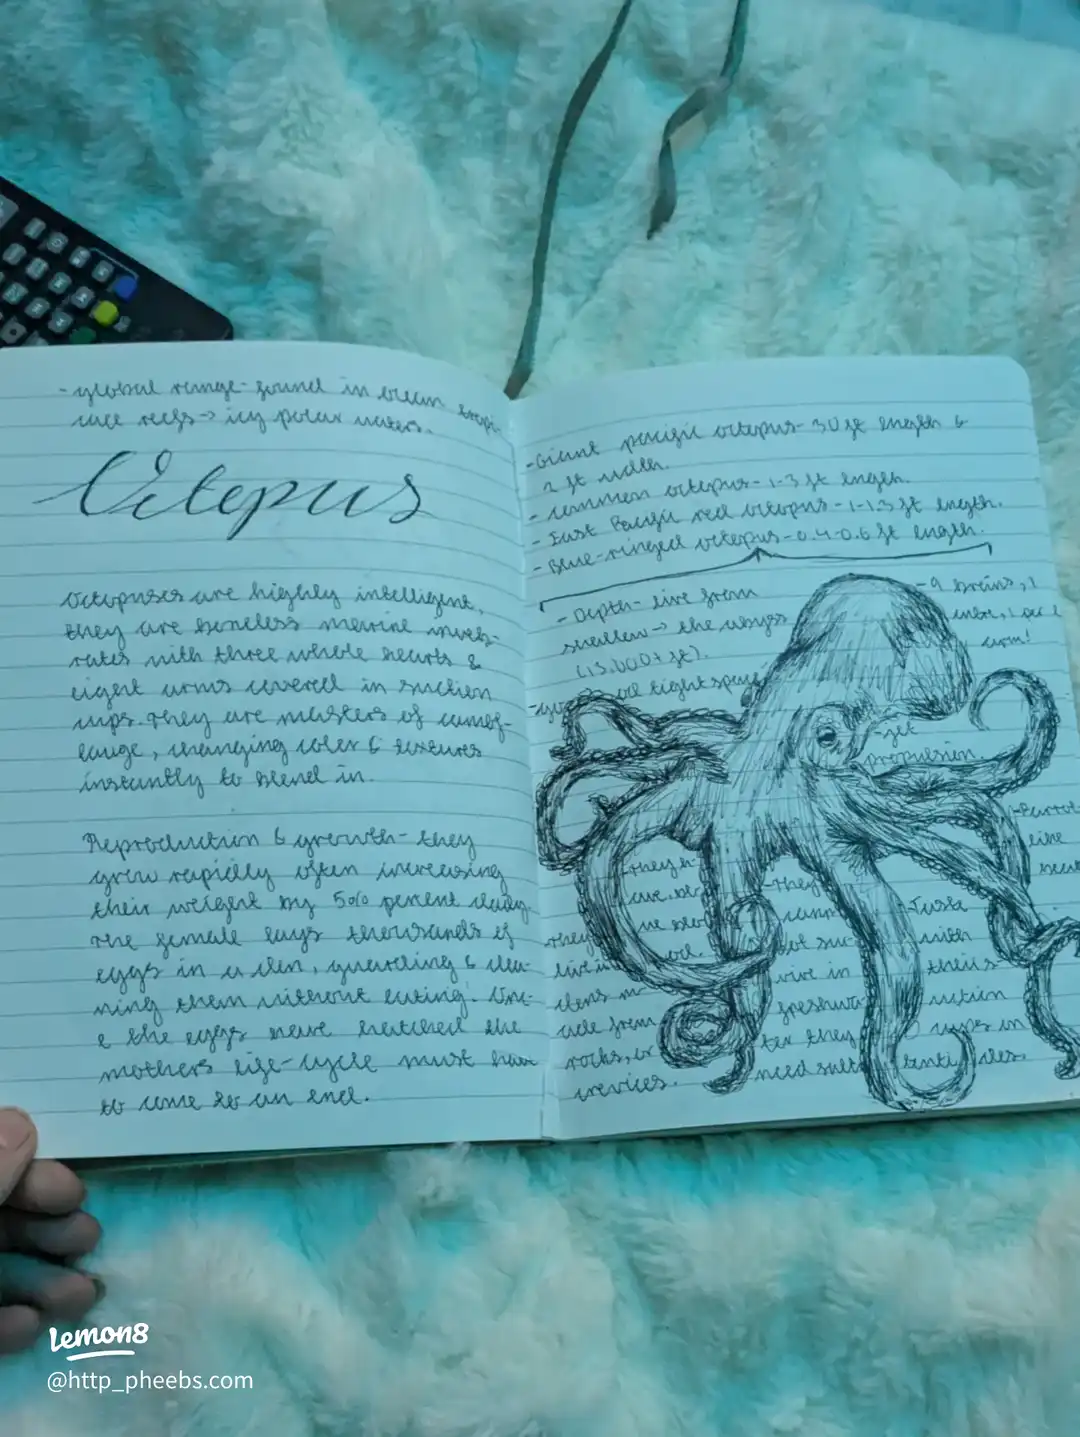 - global range - found in ocean tropi-
cace reefs → icy polar waters.
Octopus
Octopuses are highly intelligent,
they are boneless marine inveb-
rates with three whole hearts &
eight arms covered in suction
cups. They are masters of camof-
lauge, changing color & textures
instantly to blend in.
Reproduction & growth - they
grow rapidly often increasing
their weight by 5% percent daily
The female lays thousands of
eggs in a den, guarding & clea-
ning them without eating. Onc-
e the eggs have hatched the
mothers life-cycle must have
to come to an end.
- Giant pacific octopus - 30 ft length &
2 ft width.
- common octopus - 1-3 ft length.
- East Pacific red octopus - 1-1.3 ft length.
- Blue-ringed octopus - 0.4-0.6 ft length.
- Depth - live from
shallow → the abyss
(13,000+ ft).
tight space
- 9 brains, 1
1 per
arm!
- jet
propulsion
- They h-
ave
- They
live in
dens m-
ade from
rocks, or
crevices.
- They
cann
ot sur-
vive in
freshwa
ter they
need salt
- Taste
with
their s-
uction
cups on
tenticles.
- Parrot
like
beak
Lemon8
@http_pheebs.com